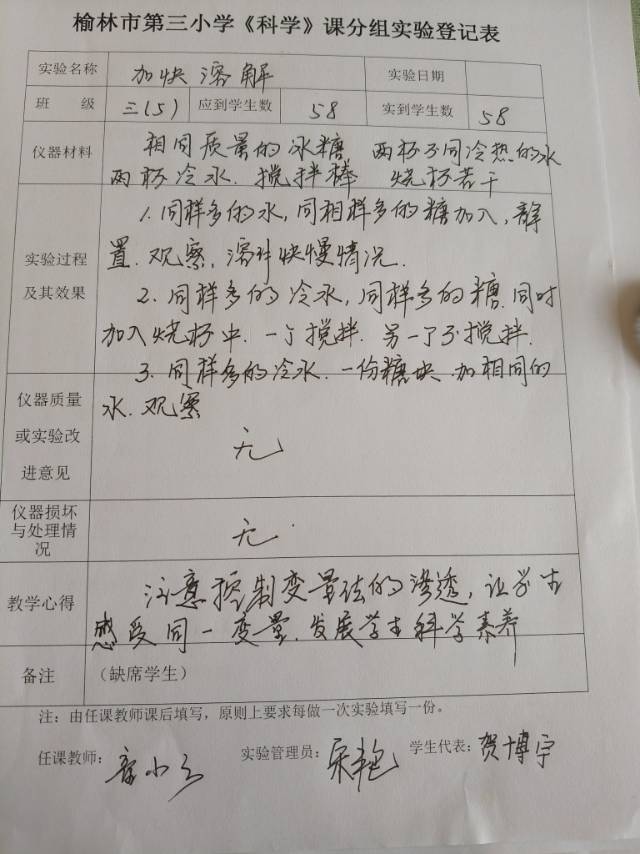 榆林市第三小学《科学》课分组实验登记表
实验名称 加快溶解 实验日期
班 级 三(5) 应到学生数 58 实到学生数 58
仪器材料 相同质量的冰糖 两杯不同冷热的水
两杯冷水. 搅拌棒 烧杯若干
1. 同样多的水, 同相样多的糖加入, 静
实验过程 置. 观察, 溶解快慢情况.
及其效果 2. 同样多的冷水, 同样多的糖. 同时
加入烧杯中. 一个搅拌. 另一个不搅拌.
3. 同样多的冷水. 一份糖块 加相同的
仪器质量 水. 观察
或实验改 无
进意见
仪器损坏
与处理情 无.
况
教学心得 注意控制变量法的渗透, 让学生
感受同一变量. 发展学生科学素养
备注 (缺席学生)
注:由任课教师课后填写,原则上要求每做一次实验填写一份。
任课教师: 实验管理员: 学生代表: 贺博宇